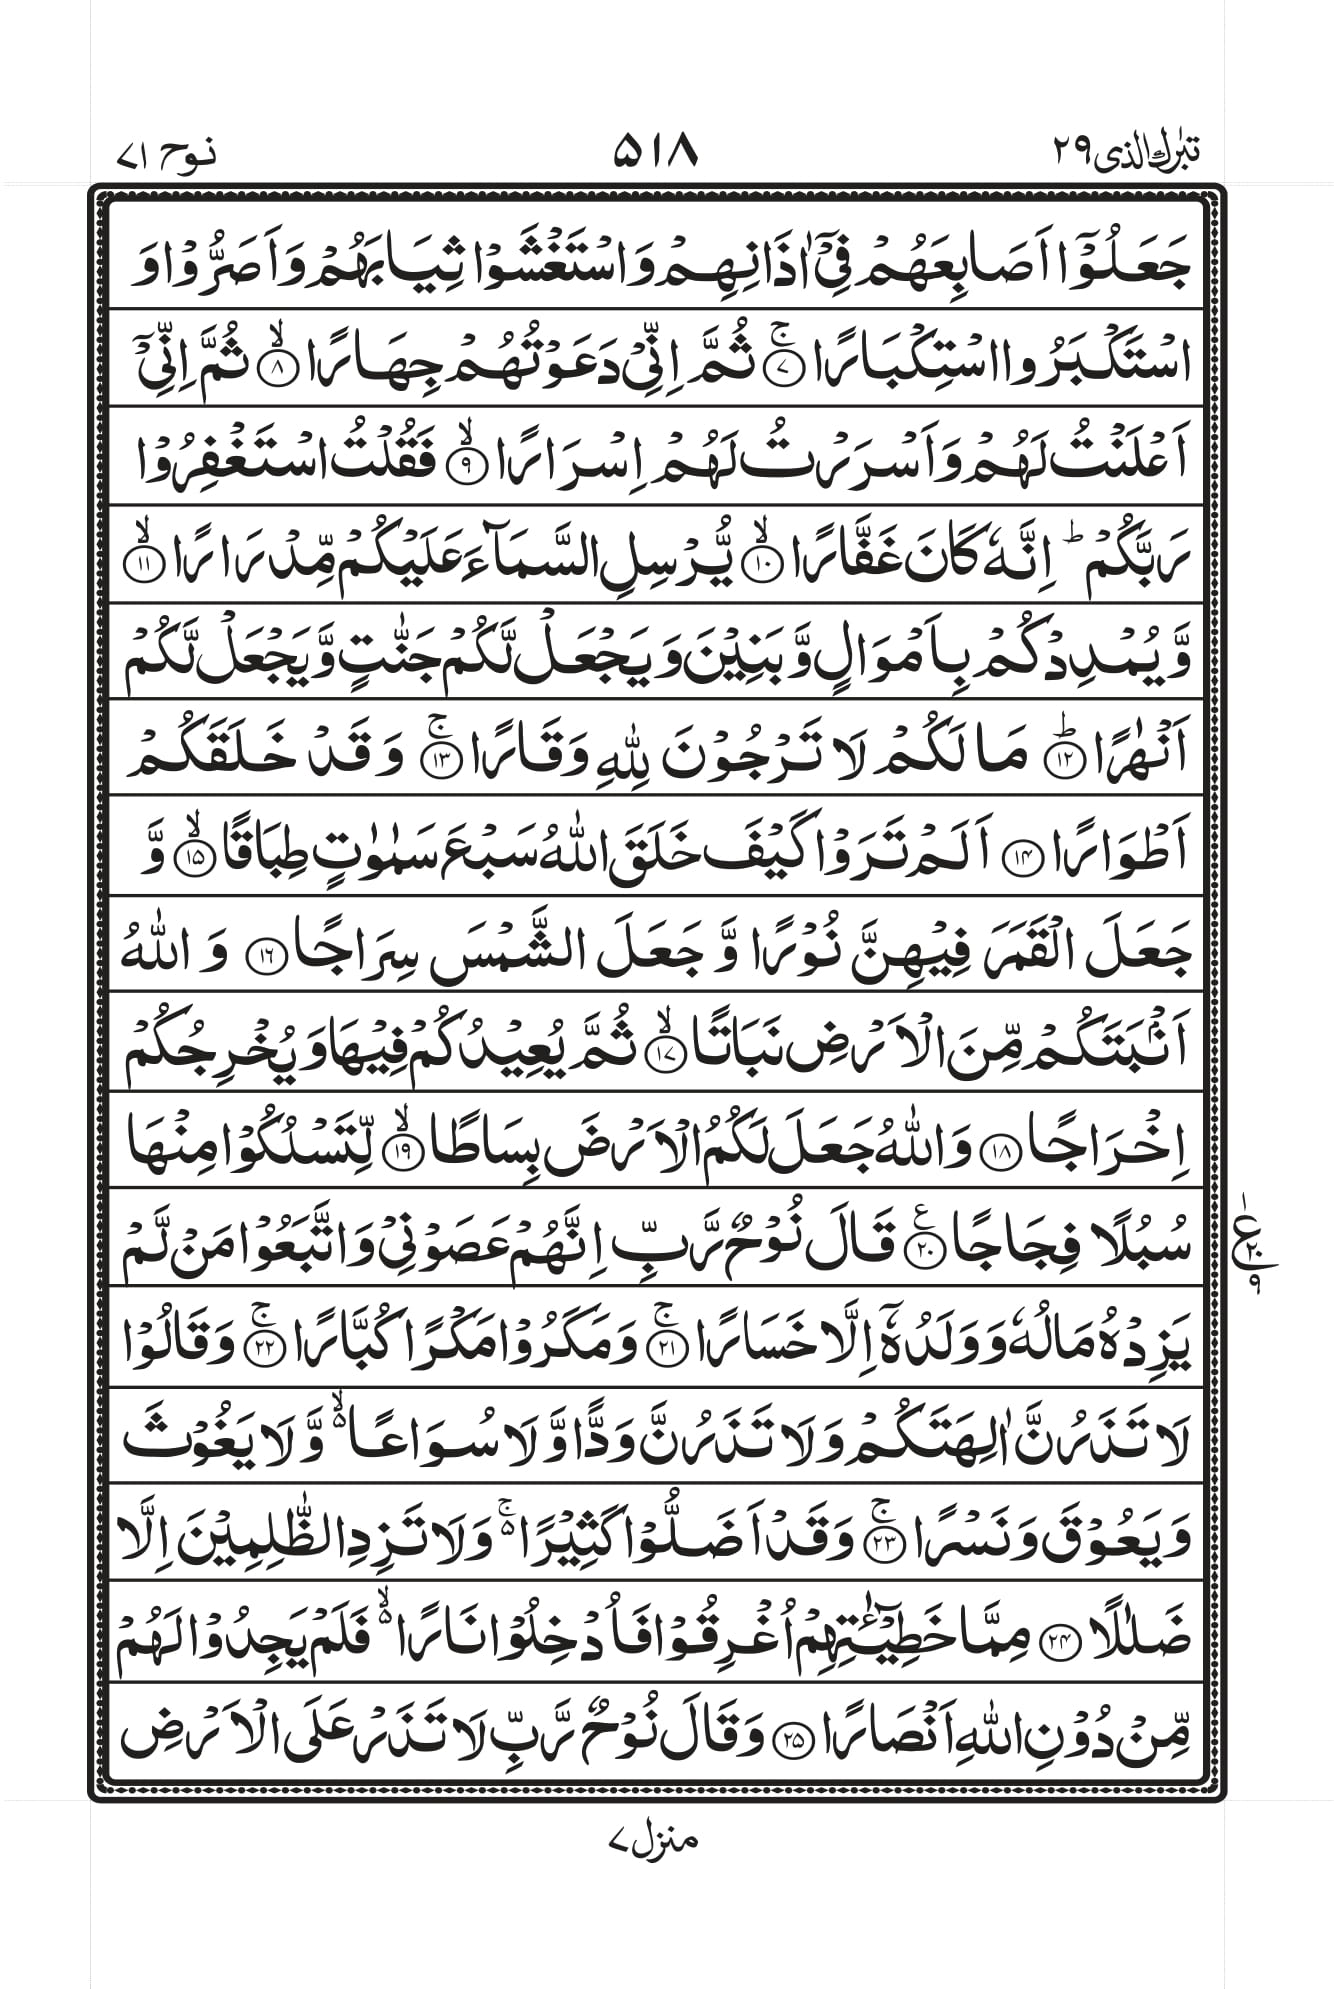 تبٰرك الذی ۲۹
۵۱۸
نوح ۷۱
جَعَلُوْۤا اَصَابِعَهُمْ فِیْۤ اٰذَانِهِمْ وَاسْتَغْشَوْا ثِیَابَهُمْ وَاَصَرُّوْا وَ
اسْتَكْبَرُوا اسْتِكْبَارًا ۚ۷ ثُمَّ اِنِّیْ دَعَوْتُهُمْ جِهَارًا ۙ۸ ثُمَّ اِنِّیْۤ
اَعْلَنْتُ لَهُمْ وَاَسْرَرْتُ لَهُمْ اِسْرَارًا ۙ۹ فَقُلْتُ اسْتَغْفِرُوْا
رَبَّكُمْ ؕ اِنَّهٗ كَانَ غَفَّارًا ۙ۱۰ یُّرْسِلِ السَّمَآءَ عَلَیْكُمْ مِّدْرَارًا ۙ۱۱
وَّیُمْدِدْكُمْ بِاَمْوَالٍ وَّبَنِیْنَ وَیَجْعَلْ لَّكُمْ جَنّٰتٍ وَّیَجْعَلْ لَّكُمْ
اَنْهٰرًا ؕ۱۲ مَا لَكُمْ لَا تَرْجُوْنَ لِلّٰهِ وَقَارًا ۚ۱۳ وَقَدْ خَلَقَكُمْ
اَطْوَارًا ۱۴ اَلَمْ تَرَوْا كَیْفَ خَلَقَ اللّٰهُ سَبْعَ سَمٰوٰتٍ طِبَاقًا ۙ۱۵ وَّ
جَعَلَ الْقَمَرَ فِیْهِنَّ نُوْرًا وَّجَعَلَ الشَّمْسَ سِرَاجًا ۱۶ وَاللّٰهُ
اَنْۢبَتَكُمْ مِّنَ الْاَرْضِ نَبَاتًا ۙ۱۷ ثُمَّ یُعِیْدُكُمْ فِیْهَا وَیُخْرِجُكُمْ
اِخْرَاجًا ۱۸ وَاللّٰهُ جَعَلَ لَكُمُ الْاَرْضَ بِسَاطًا ۙ۱۹ لِّتَسْلُكُوْا مِنْهَا
سُبُلًا فِجَاجًا ۠۲۰ قَالَ نُوْحٌ رَّبِّ اِنَّهُمْ عَصَوْنِیْ وَاتَّبَعُوْا مَنْ لَّمْ
ع ۱ ۲۰ ۹
یَزِدْهُ مَالُهٗ وَوَلَدُهٗۤ اِلَّا خَسَارًا ۚ۲۱ وَمَكَرُوْا مَكْرًا كُبَّارًا ۚ۲۲ وَقَالُوْا
لَا تَذَرُنَّ اٰلِهَتَكُمْ وَلَا تَذَرُنَّ وَدًّا وَّلَا سُوَاعًا ۙ۬ وَّلَا یَغُوْثَ
وَیَعُوْقَ وَنَسْرًا ۚ۲۳ وَقَدْ اَضَلُّوْا كَثِیْرًا ۚ۬ وَلَا تَزِدِ الظّٰلِمِیْنَ اِلَّا
ضَلٰلًا ۲۴ مِمَّا خَطِیْٓــٰٔتِهِمْ اُغْرِقُوْا فَاُدْخِلُوْا نَارًا ۙ۬ فَلَمْ یَجِدُوْا لَهُمْ
مِّنْ دُوْنِ اللّٰهِ اَنْصَارًا ۲۵ وَقَالَ نُوْحٌ رَّبِّ لَا تَذَرْ عَلَی الْاَرْضِ
منزل ۷